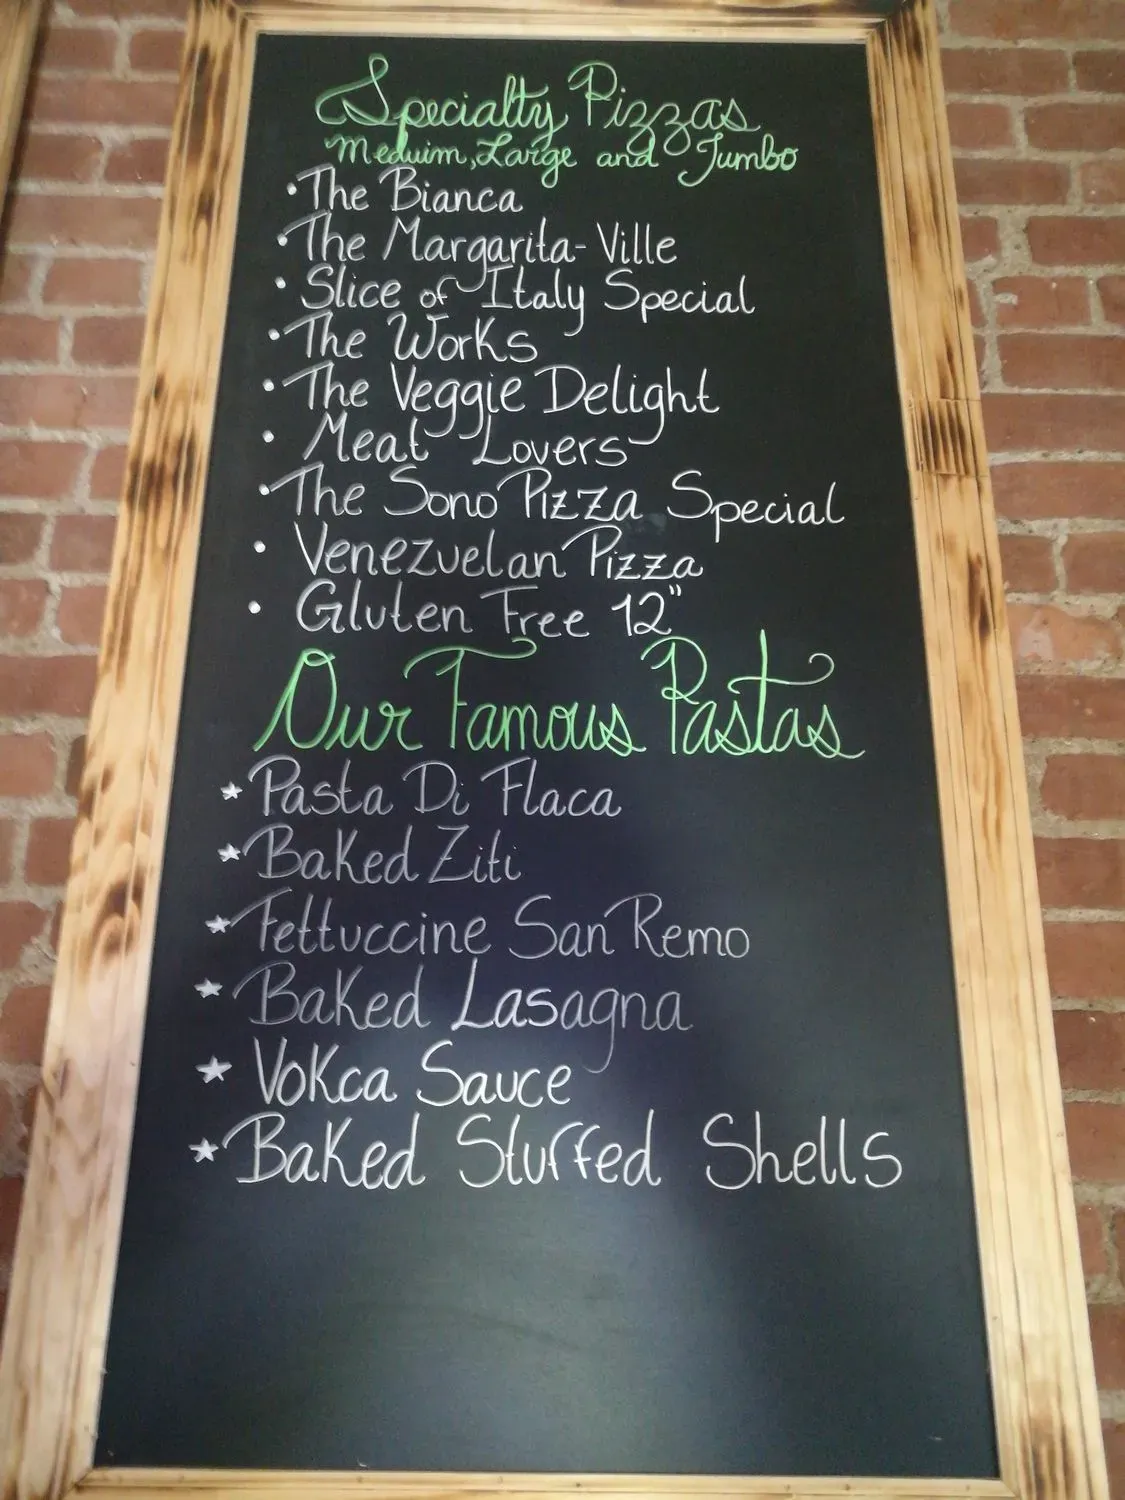 Specialty Pizzas
Meduim, Large and Jumbo
• The Bianca
• The Margarita-Ville
• Slice of Italy Special
• The Works
• The Veggie Delight
• Meat Lovers
• The Sono Pizza Special
• Venezuelan Pizza
• Gluten Free 12"
Our Famous Pastas
★ Pasta Di Flaca
★ Baked Ziti
★ Fettuccine San Remo
★ Baked Lasagna
★ Vokca Sauce
★ Baked Stuffed Shells